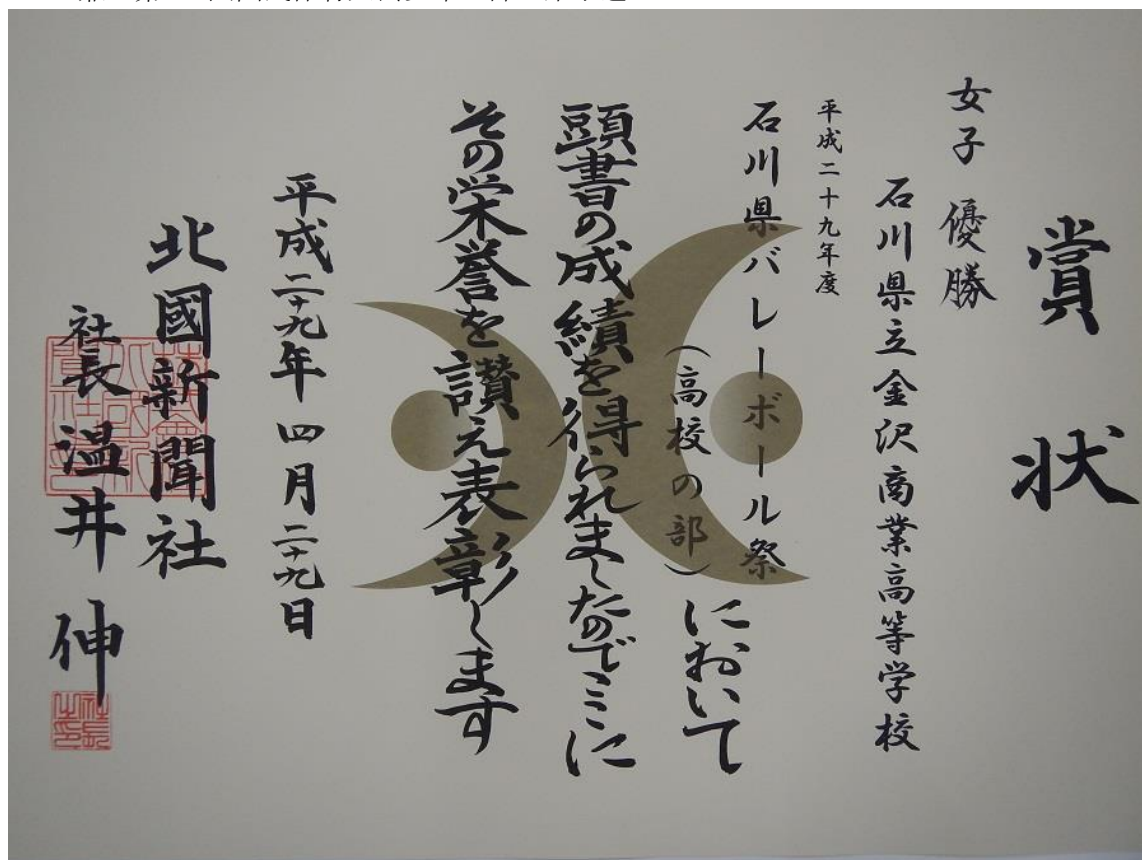 賞状
女子 優勝
石川県立金沢商業高等学校
平成二十九年度
石川県バレーボール祭
(高校の部)において
頭書の成績を得られましたのでここに
その栄誉を讃え表彰します
平成二十九年 四月二十九日
北國新聞社
社長 温井 伸